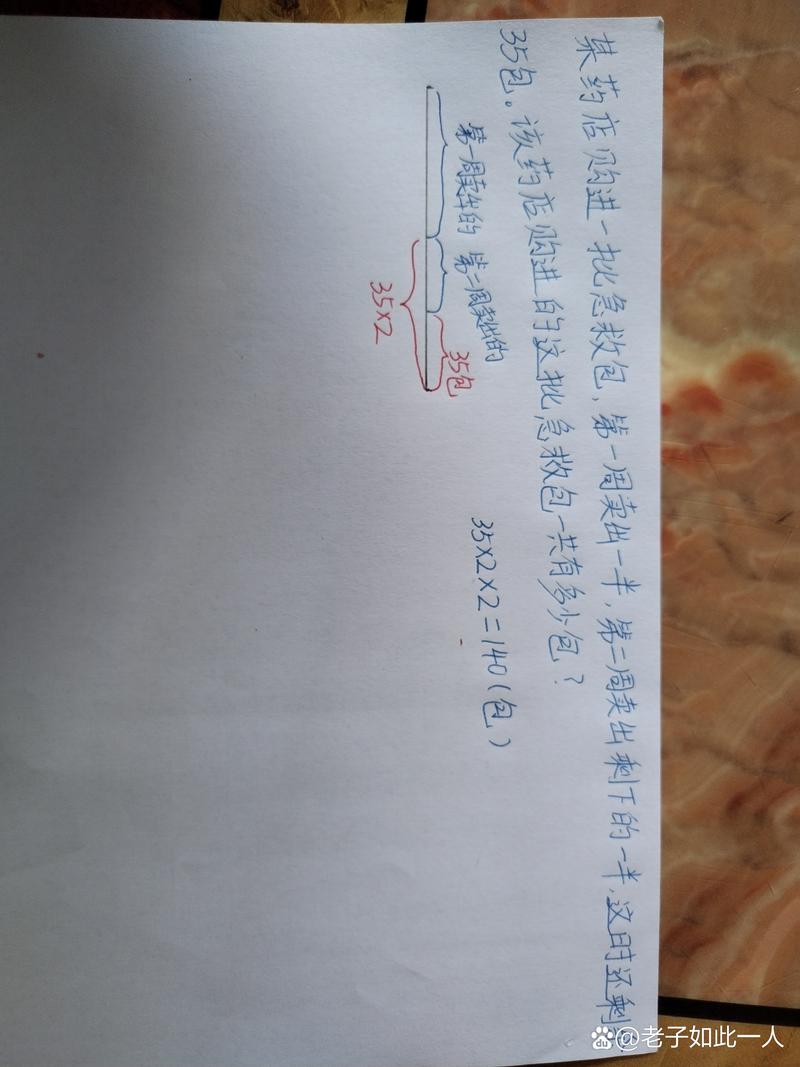 某药店购进一批急救包，第一周卖出一半，第二周卖出剩下的一半，这时还剩
35包。该药店购进的这批急救包一共有多少包？
第一周卖出的 第二周卖出的
35包
35×2
35×2×2=140（包）
Bai du @老子如此一人